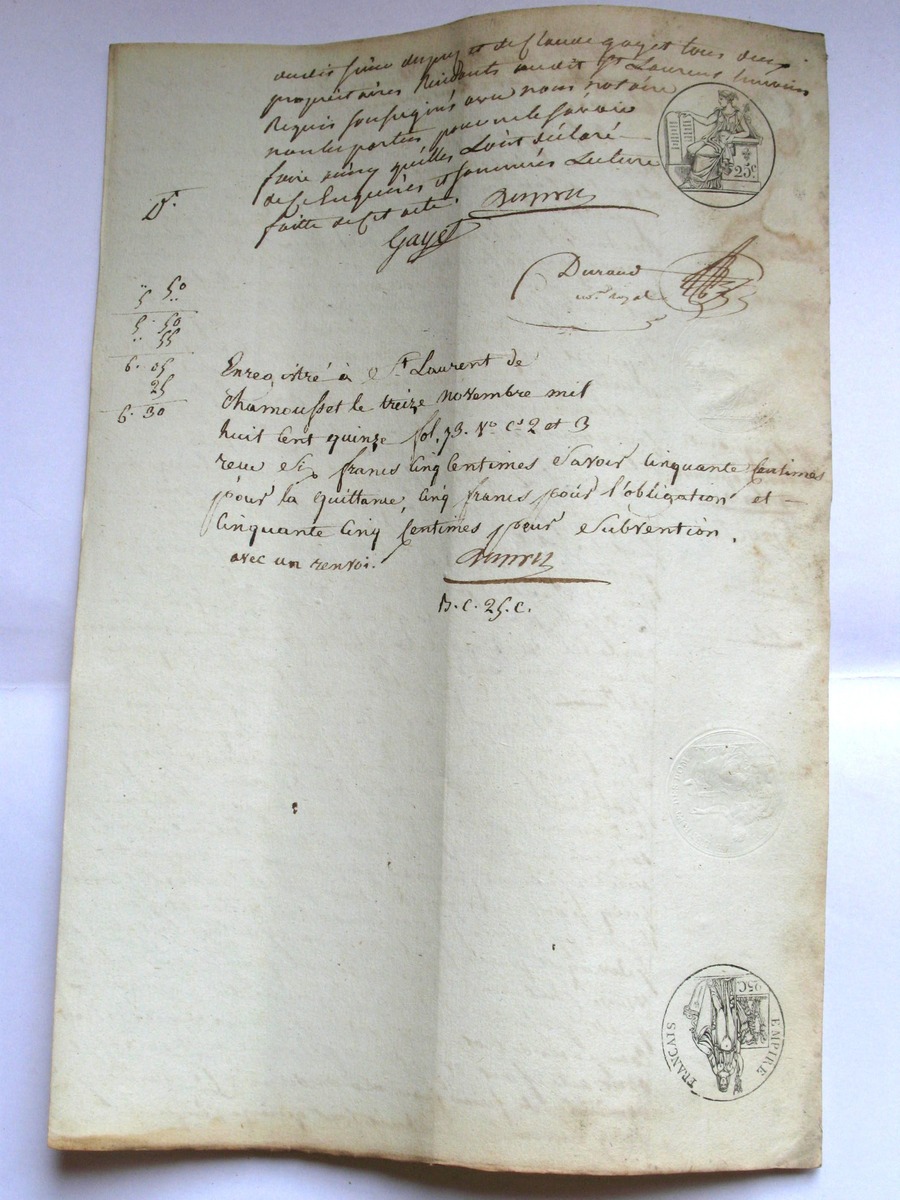 et de Claude gayet tous deux
propriétaires Residants audit St Laurent
Requis soussignés avec nous notaire
non les parties pour ne le savoir
faire ainsy qu'elles L'ont déclaré
de ce Enquises et sommées Lecture
faite de cet acte.
25c
Gayet
Durand
nre royal
" 50
5 "
5. 50
" 55
6. 05
25
6. 30
Enregistré à St Laurent de
Chamousset le treize novembre mil
huit cent quinze fol. 73. Vo cs 2 et 3
reçu Six francs cinq Centimes Savoir cinquante Centimes
pour la quittance, cinq francs pour l'obligation et
Cinquante cinq Centimes pour Subvention.
avec un renvoi.
B. C. 25. C.
25C
EMPIRE
FRANÇAIS